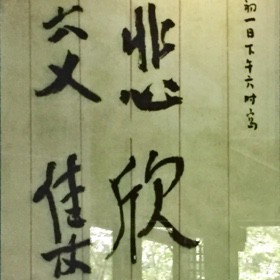 初一日下午六时写
悲欣
交集